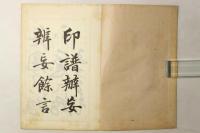 印譜辦妄
辨妄餘言